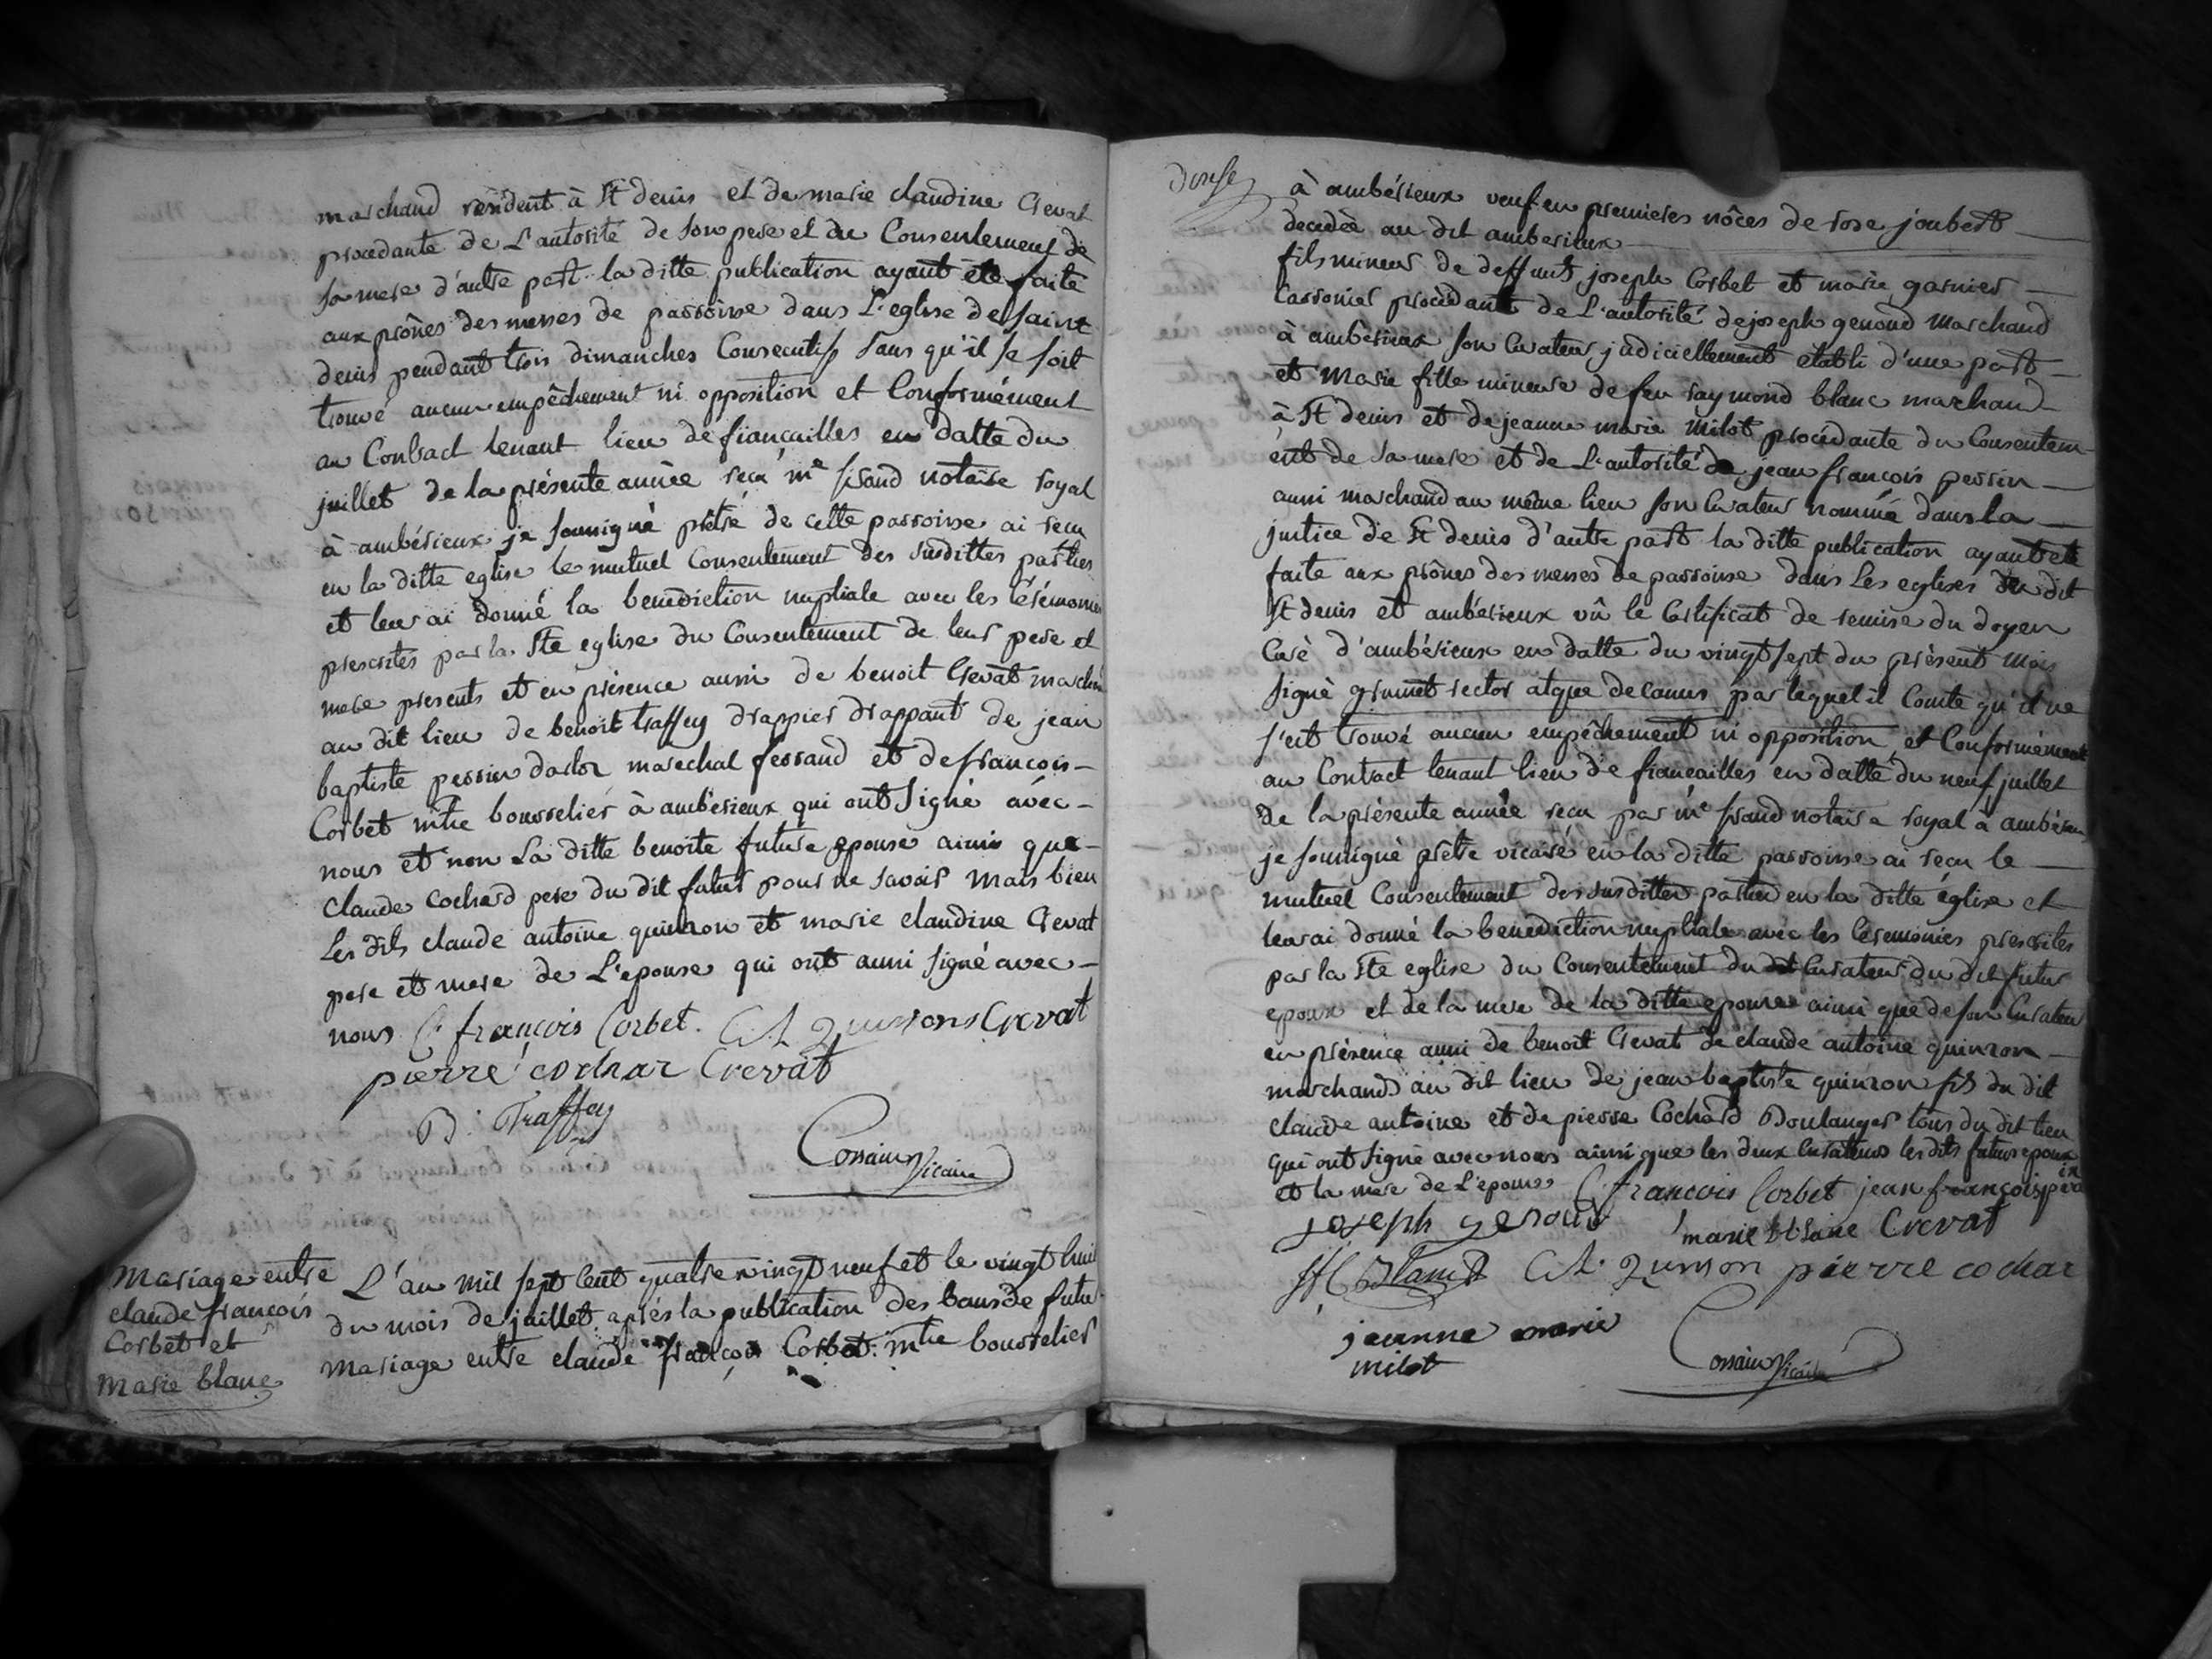 marchand résident à St denis et de marie claudine Crevat
procedante de L'autorité de son pere et du Consentement de
sa mere d'autre part la ditte publication ayant été faite
aux prônes des messes de parroisse dans L'eglise de saint
denis pendant trois dimanches Consecutifs sans qu'il se soit
trouvé aucun empêchement ni opposition et Conformément
au Contract tenant lieu de fiançailles en datte du
juillet de la présente année reçu me sirand notaire royal
à ambérieux je soussigné prêtre de cette parroisse ai recu
en la ditte eglise le mutuel Consentement des susdittes parties
et leur ai donné la benediction nuptiale avec les cérémonies
prescrites par la Ste eglise du Consentement de leurs pere et
mere presents et en présence aussi de benoit Crevat marchand
au dit lieu de benoit traffey drappier drappant de jean
baptiste perrin marechal ferrand et de françois
Corbet mtre bourrelier à ambérieux qui ont signé avec
nous et non La ditte benoite future epouse ainsi que
Claude Cochard pere du dit futur pour ne savoir mais bien
Les dits claude antoine quinson et marie claudine Crevat
pere et mere de L'epouse qui ont aussi signé avec
nous C. françois Corbet. C. A. quinson Crevat
pierre cochar Crevat
B. Traffey
Cossain Vicaire
Mariage entre
claude françois
Corbet et
Marie blanc
L'an mil sept cent quatre vingt neuf et le vingt huit
du mois de juillet après la publication des bans de futur
mariage entre claude françois Corbet mtre bourrelier
douse
à ambérieux veuf en premieres nôces de rose joubert
decedée au dit amberieux
fils mineur de deffunts joseph Corbet et marie garnier
Carronier procedant de L'autorité de joseph genoud marchand
à ambérieux son Curateur judiciellement établi d'une part
et Marie fille mineure de feu raymond blanc marchand
à St denis et de jeanne marie Milot procédante du Consentem
ent de sa mere et de L'autorité de jean françois perrin
aussi marchand au même lieu son Curateur nommé dans la
justice de St denis d'autre part la ditte publication ayant été
faite aux prônes des messes de parroisse dans Les eglises du dit
St denis et ambérieux vû le Certificat de remise du doyen
Curé d'ambérieux en datte du vingt sept du présent mois
signé grumet rector atque decanus par lequel il Conste qu'il ne
s'est trouvé aucun empêchement ni opposition et Conformément
au Contract tenant lieu de fiançailles en datte du neuf juillet
de la présente année recu par me sirand notaire royal à ambérieux
je soussigné prêtre vicaire en la ditte parroisse ai recu le
mutuel Consentement des susdittes parties en la ditte église et
leur ai donné la benediction nuptiale avec les Ceremonies prescrites
par la Ste eglise du Consentement du dit Curateur du dit futur
epoux et de la mere de la ditte epouse ainsi que de son Curateur
en présence aussi de benoit Crevat de claude antoine quinson
marchands au dit lieu de jean baptiste quinson fils du dit
claude antoine et de pierre Cochard Boulanger tous du dit lieu
qui ont signé avec nous ainsi que les deux Curateurs les dits futurs epoux
et la mere de L'epouse C. françois Corbet jean françois perrin
joseph genoud marie blanc Crevat
C. A. Quinson pierre cochar
jeanne marie
milot
Cossain Vicaire